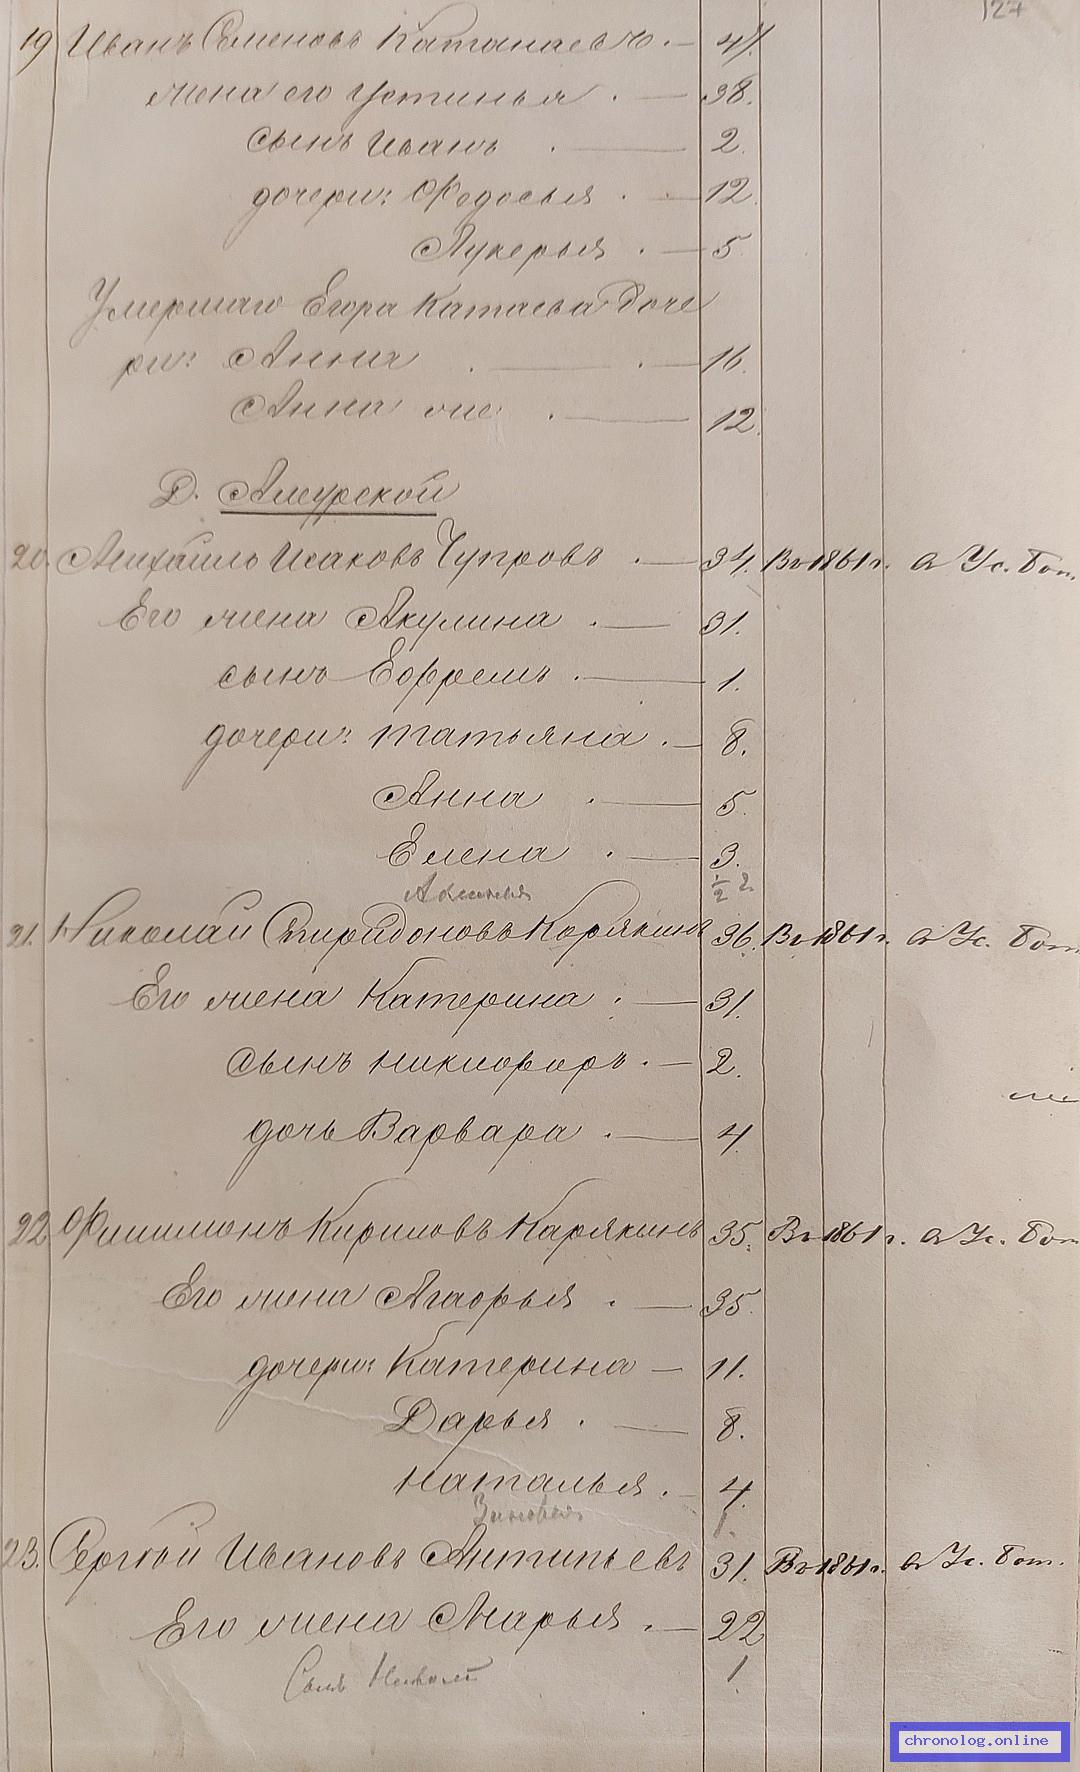 127
19 Иванъ Семеновъ Катанаевъ . — 47.
жена его Устинья . — 38.
сынъ Иванъ . — 2.
дочери: Федосья . — 12.
Лукерья . — 5
Умершаго Егора Катаева доче
ри: Анна . — . — 16.
Анна же . — 12.
Д. Амурской
20. Михайло Исаковъ Чупровъ . — 34. Въ 1861 г. съ Ус. Бот.
Его жена Акулина . — 31.
сынъ Ефремъ . — 1.
дочери: Татьяна . — 8.
Анна . — 5.
Елена . — 3.
Аксинья 1/2 г.
21. Николай Спиридоновъ Корякинъ 36. Въ 1861 г. съ Ус. Бот.
Его жена Катерина . — 31.
сынъ Никифоръ . — 2.
дочь Варвара . — 4.
22 Филимонъ Кириловъ Карякинъ 35. Въ 1861 г. съ Ус. Бот
Его жена Агафья . — 35.
дочери: Катерина — 11.
Дарья . — 8.
Наталья . — 4.
Зиновья 1.
23. Сергѣй Ивановъ Антипьевъ 31. Въ 1861 г. съ Ус. Бот.
Его жена Марья . — 22
Сынъ Николай 1
chronolog.online